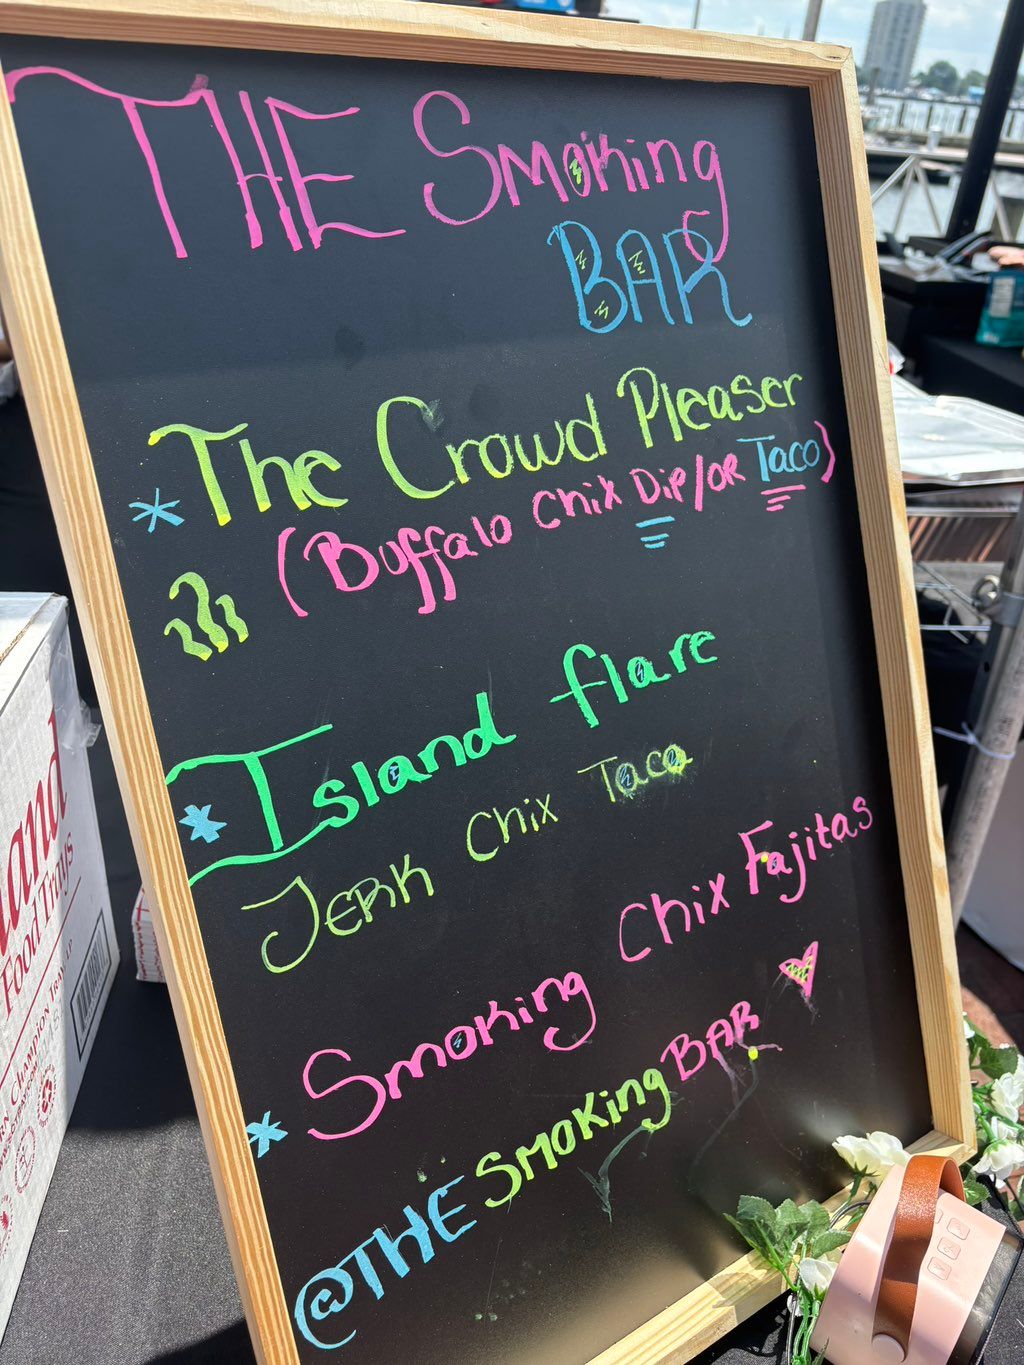 THE Smoking
BAR
* The Crowd Pleaser
(Buffalo Chix Dip/OR Taco)
* Island flare
JERK Chix Taco
* Smoking Chix Fajitas
@THE SMOKing BAR
Food Trays